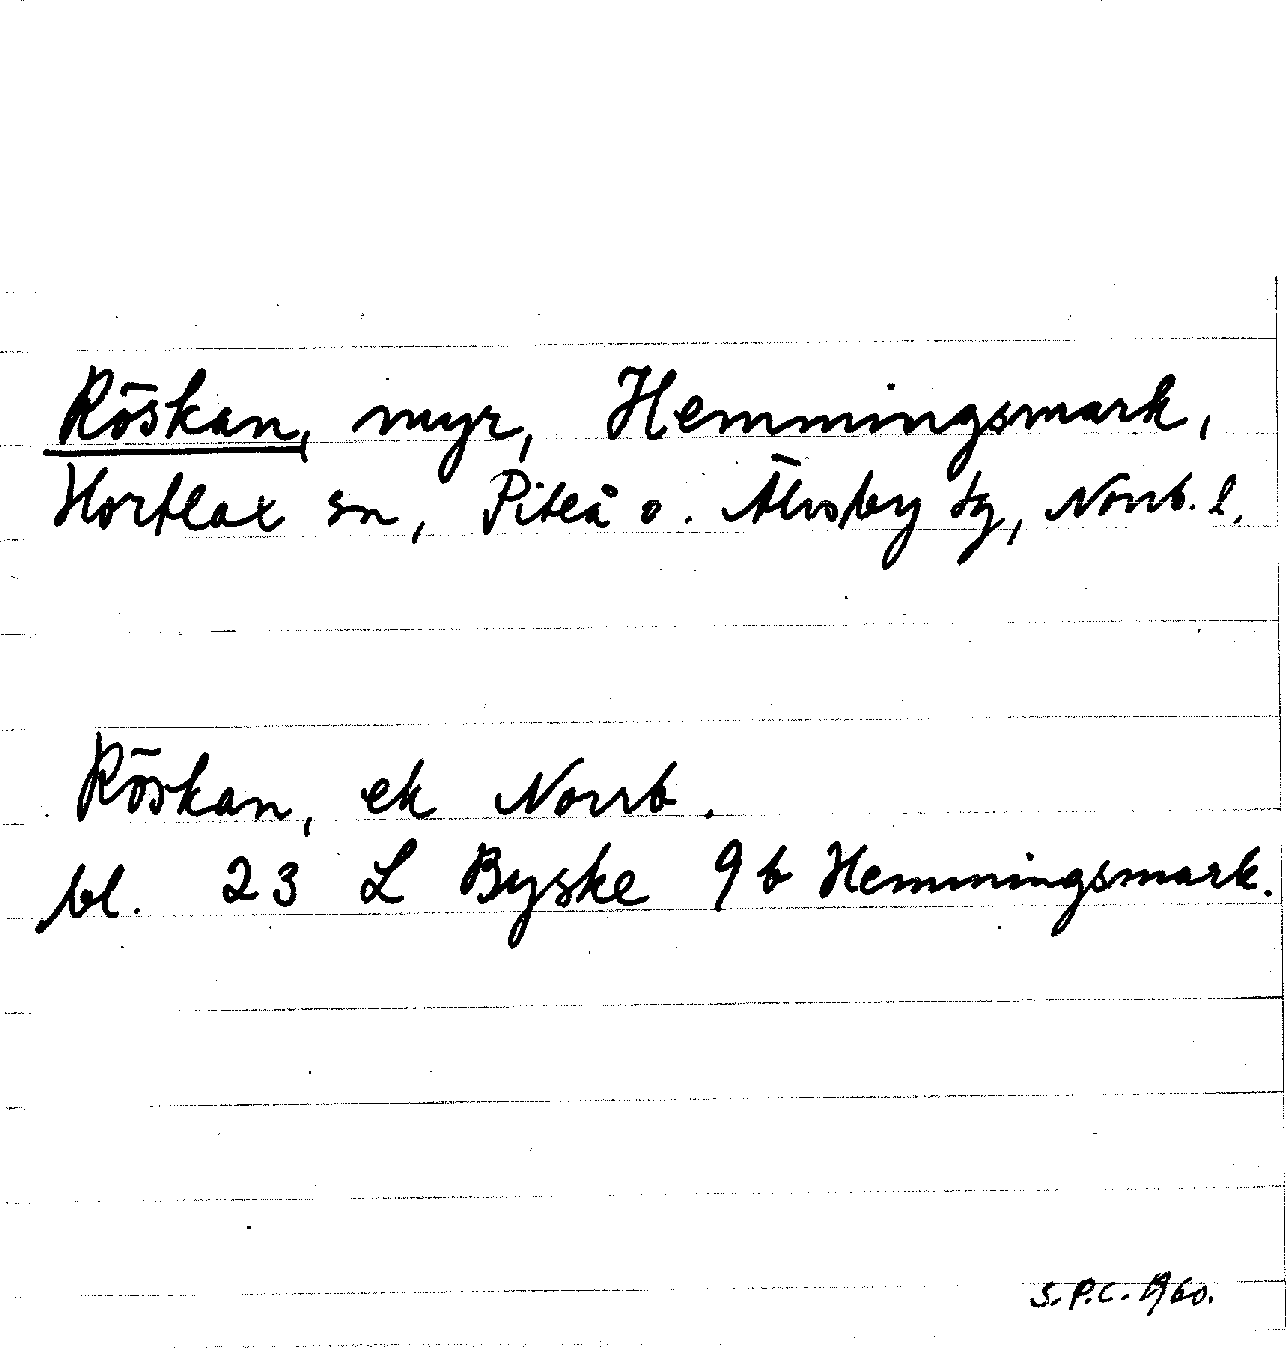 Röskan, myr, Hemmingsmark,
Hortlax sn, Piteå o. Älvsby tg, Norrb. l.
Röskan, ek Norrb.
bl. 23 L Byske 9b Hemmingsmark.
S.P.C. 1960.